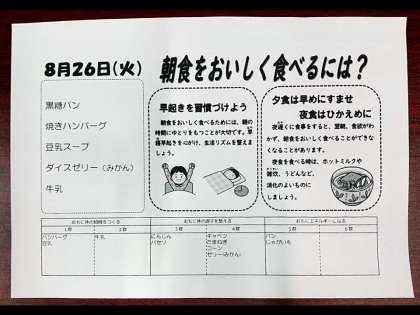 8月26日(火)
朝食をおいしく食べるには？
黒糖パン
焼きハンバーグ
豆乳スープ
ダイスゼリー（みかん）
牛乳
早起きを習慣づけよう
朝食をおいしく食べるためには、朝の
時間にゆとりをもつことが大切です。早
寝早起きを心がけ、生活リズムを整えま
しょう。
夕食は早めにすませ
夜食はひかえめに
夜遅くに食事をすると、翌朝、食欲がわ
かず、朝食をおいしく食べることができな
くなることがあります。
夜食を食べる時は、ホットミルクや
雑炊、うどんなど、
消化のよいものに
しましょう。
おもに体の組織をつくる
おもに体の調子を整える
おもにエネルギーになる
1群 2群 3群 4群 5群 6群
ハンバーグ 牛乳 にんじん キャベツ パン
豆乳 パセリ たまねぎ じゃがいも
コーン
ゼリー(みかん)